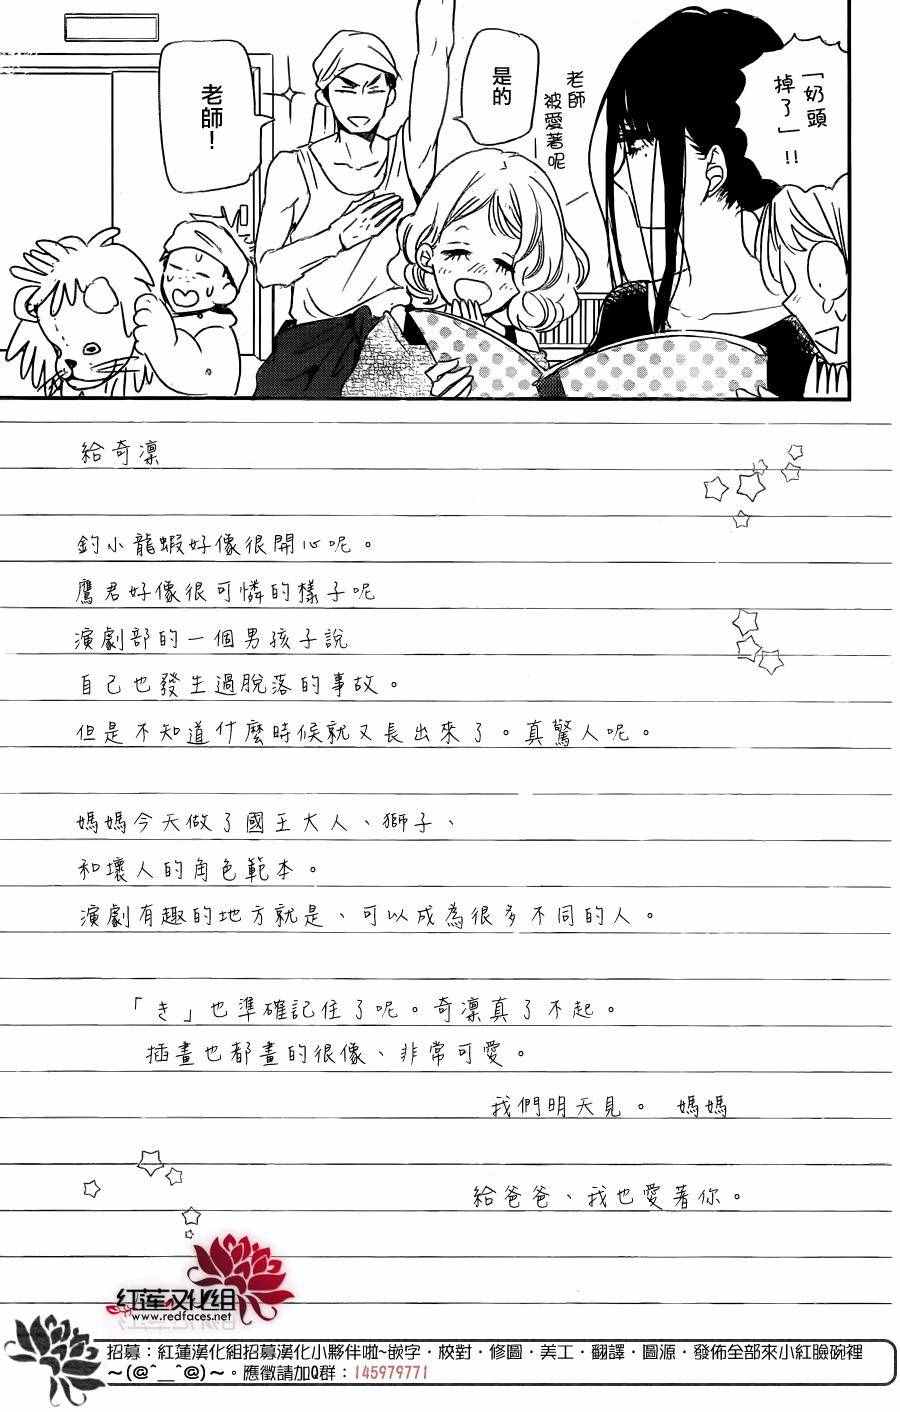 「奶頭
掉了」!!
老師
被愛著呢
是的
老師！
給奇凜
釣小龍蝦好像很開心呢。
鷹君好像很可憐的樣子呢
演劇部的一個男孩子說
自己也發生過脫落的事故。
但是不知道什麼時候就又長出來了。真驚人呢。
媽媽今天做了國王大人、獅子、
和壞人的角色範本。
演劇有趣的地方就是、可以成為很多不同的人。
「き」也準確記住了呢。奇凜真了不起。
插畫也都畫的很像、非常可愛。
我們明天見。 媽媽
給爸爸、我也愛著你。
紅蓮汉化组
www.redfaces.net
招募：紅蓮漢化組招募漢化小夥伴啦~嵌字・校對・修圖・美工・翻譯・圖源・發佈全部來小紅臉碗裡
～(@^__^@)～。應徵請加Q群：145979771